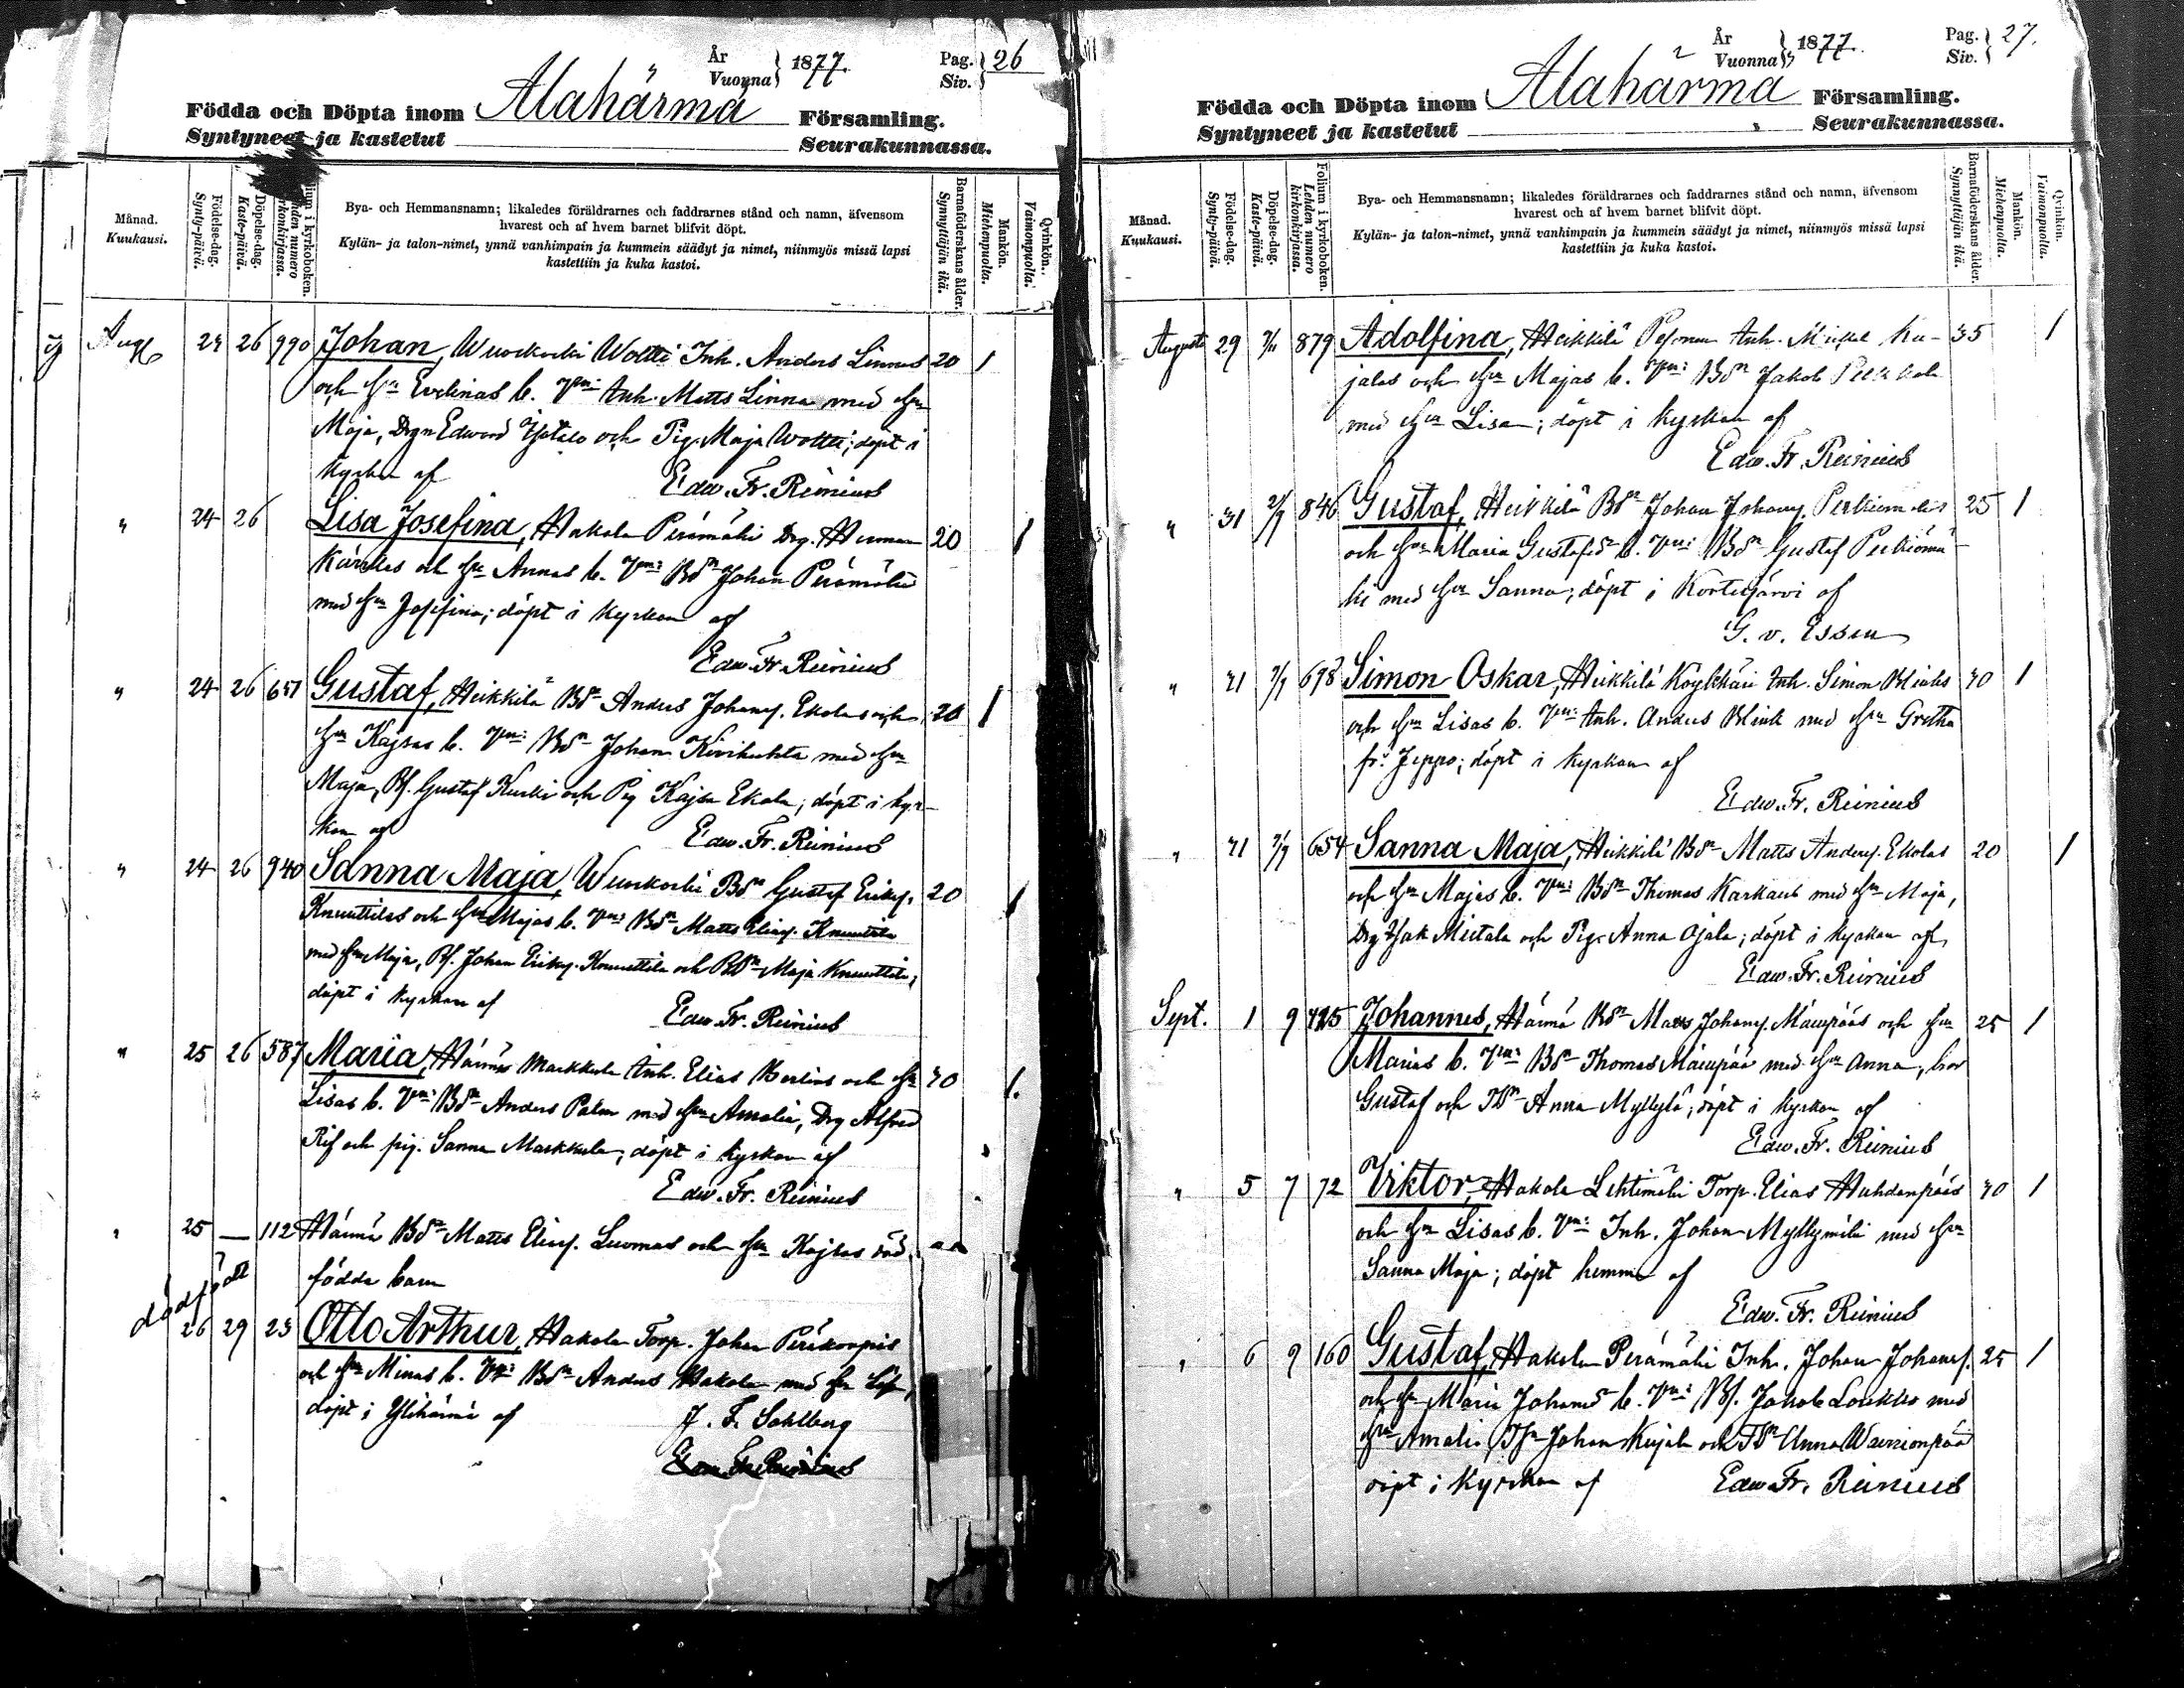 År
Vuonna } 1877.
Pag.
Siv. } 26
Födda och Döpta inom Alahärmä Församling.
Syntyneet ja kastetut Seurakunnassa.
Månad.
Kuukausi.
Födelse-dag.
Synty-päivä.
Döpelse-dag.
Kaste-päivä.
Folium i kyrkoboken.
Lehden numero
kirkonkirjassa.
Bya- och Hemmansnamn; likaledes föräldrarnes och faddrarnes stånd och namn, äfvensom
hvarest och af hvem barnet blifvit döpt.
Kylän- ja talon-nimet, ynnä vanhimpain ja kummein säädyt ja nimet, niinmyös missä lapsi
kastettiin ja kuka kastoi.
Barnaföderskans ålder.
Synnyttäjän ikä.
Mankön.
Miehenpuolta.
Qvinkön.
Vaimonpuolta.
Aug 24 26 990 Johan, Wuoskoski Woltti Inh. Anders Linnas 20 1
och Hu Evelinas b. Vni: Inh. Matts Linna med Hu
Maja, Drgn Edward Ylitalo och Pig. Maja Woltti; döpt i
kyrkan af Edw. Fr. Reinius
" 24 26 Lisa Josefina, Hakola Perämäki Drg. Herman 20 1
Kärnäs och Hu Annas b. Vni: Bdn Johan Perämäki
med Hu Josefina; döpt i kyrkan af
Edw. Fr. Reinius
" 24 26 651 Gustaf, Heikkilä Bdn Anders Johans. Ekolas och 20 1
Hu Kajsas b. Vni: Bdn Johan Kivihuhta med Hu
Maja, Bs. Gustaf Kurki och Pig Kajsa Ekola; döpt i kyr-
kan af Edw. Fr. Reinius
" 24 26 940 Sanna Maja, Wuoskoski Bdn Gustaf Eriks. 20 1
Knuuttilas och Hu Majas b. Vni: Bdn Matts Elias. Knuuttila
med Hu Maja, Bs. Johan Eriks. Knuuttila och Bdn Maja Knuuttila;
döpt i kyrkan af Edw. Fr. Reinius
" 25 26 587 Maria, Härmä Markkula Inh. Elias Kerlins och Hu 30 1
Lisas b. Vni: Bdn Anders Palm med Hu Amalia, Drg Alfred
Rif och pig. Sanna Markkula; döpt i kyrkan af
Edw. Fr. Reinius
" 25 — 112 Härmä Bdn Matts Elias. Luomas och Hu Kajsas död-
födda barn
dödfödt
26 29 23 Otto Arthur, Hakola Torp. Johan Peräkorpis
och Hu Minas b. Vni: Bdn Anders Hakola med Hu Lisa,
döpt i Ylihärmä af J. F. Sahlberg
År
Vuonna } 1877.
Pag.
Siv. } 27.
Födda och Döpta inom Alahärmä Församling.
Syntyneet ja kastetut Seurakunnassa.
Månad.
Kuukausi.
Födelse-dag.
Synty-päivä.
Döpelse-dag.
Kaste-päivä.
Folium i kyrkoboken.
Lehden numero
kirkonkirjassa.
Bya- och Hemmansnamn; likaledes föräldrarnes och faddrarnes stånd och namn, äfvensom
hvarest och af hvem barnet blifvit döpt.
Kylän- ja talon-nimet, ynnä vanhimpain ja kummein säädyt ja nimet, niinmyös missä lapsi
kastettiin ja kuka kastoi.
Barnaföderskans ålder.
Synnyttäjän ikä.
Mankön.
Miehenpuolta.
Qvinkön.
Vaimonpuolta.
Augusti 29 879 Adolfina, Heikkilä Pesonen Inh. Mickel Ku- 35 1
jalas och Hu Majas b. Vni: Bdn Jakob Pesonen
med Hu Lisa; döpt i kyrkan af
Edw. Fr. Reinius
" 31 2/9 846 Gustaf, Heikkilä Bdn Johan Johans. Perkiömäkis 25 1
och Hu Maria Gustafsdr b. Vni: Bdn Gustaf Perkiömä-
ki med Hu Sanna; döpt i Kortesjärvi af
G. v. Essen
" 31 2/9 698 Simon Oskar, Heikkilä Köykkäri Inh. Simon Blinks 30 1
och Hu Lisas b. Vni: Inh. Anders Blink med Hu Gretha
fr. Jeppo; döpt i kyrkan af
Edw. Fr. Reinius
" 31 2/9 654 Sanna Maja, Heikkilä Bdn Matts Anders. Ekolas 20 1
och Hu Majas b. Vni: Bdn Thomas Karkaus med Hu Maja,
Drg Isak Mietala och Pig. Anna Ojala; döpt i kyrkan af
Edw. Fr. Reinius
Sept. 1 9 425 Johannes, Härmä Bdn Matts Johans. Mäenpääs och Hu 25 1
Marias b. Vni: Bdn Thomas Mäenpää med Hu Anna, bror
Gustaf och Anna Myllylä; döpt i kyrkan af
Edw. Fr. Reinius
" 5 7 72 Viktor, Hakola Lehtimäki Torp. Elias Huhdanpääs 30 1
och Hu Lisas b. Vni: Inh. Johan Myllymäki med Hu
Sanna Maja; döpt hemma af
Edw. Fr. Reinius
" 6 9 160 Gustaf, Hakola Perämäki Inh. Johan Johans. 25 1
och Hu Maria Johansdr b. Vni: Bs. Jakob Loukko med
Hu Amalia, Johan Kujala och Anna Wainionpää
döpt i kyrkan af Edw. Fr. Reinius